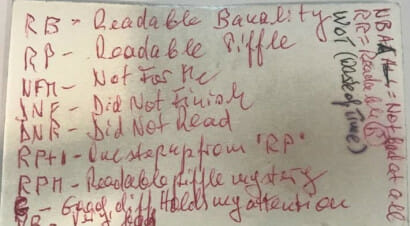 RB - Readable Banality
RP - Readable Piffle
NFM - Not For Me
DNF - Did Not Finish
DNR - Did Not Read
RP+1 - One step up from "RP"
RPM - Readable Piffle mystery
G - Good diff Holds my attention
NBAA = Not bad at all
RP - Readable
WOT (Waste of Time)